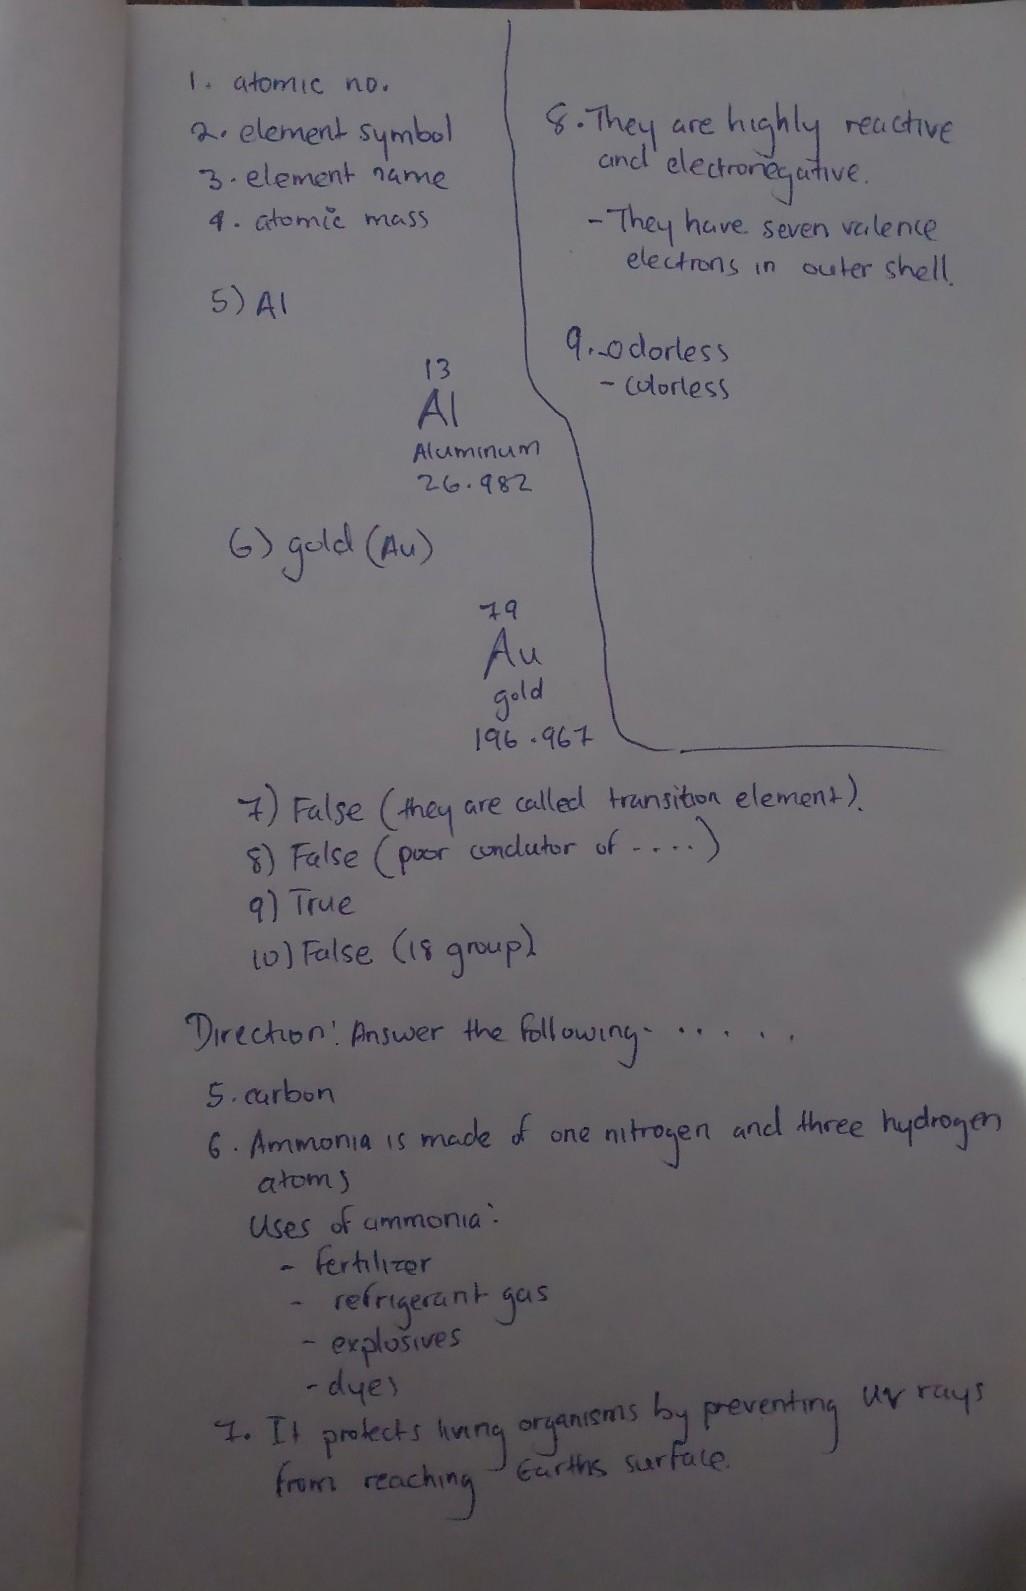 1. atomic no.
2. element symbol
3. element name
4. atomic mass
5) Al
13
Al
Aluminum
26.982
6) gold (Au)
79
Au
gold
196.967
7) False (they are called transition element).
8) False (poor condutor of ....)
9) True
10) False (18 group)
Direction: Answer the following. . . . . .
5. carbon
6. Ammonia is made of one nitrogen and three hydrogen
atoms
Uses of ammonia:
- fertilizer
- refrigerant gas
- explosives
- dyes
7. It protects living organisms by preventing uv rays
from reaching Earths surface.
8. They are highly reactive
and electronegative.
- They have seven valence
electrons in outer shell.
9. - odorless
- colorless